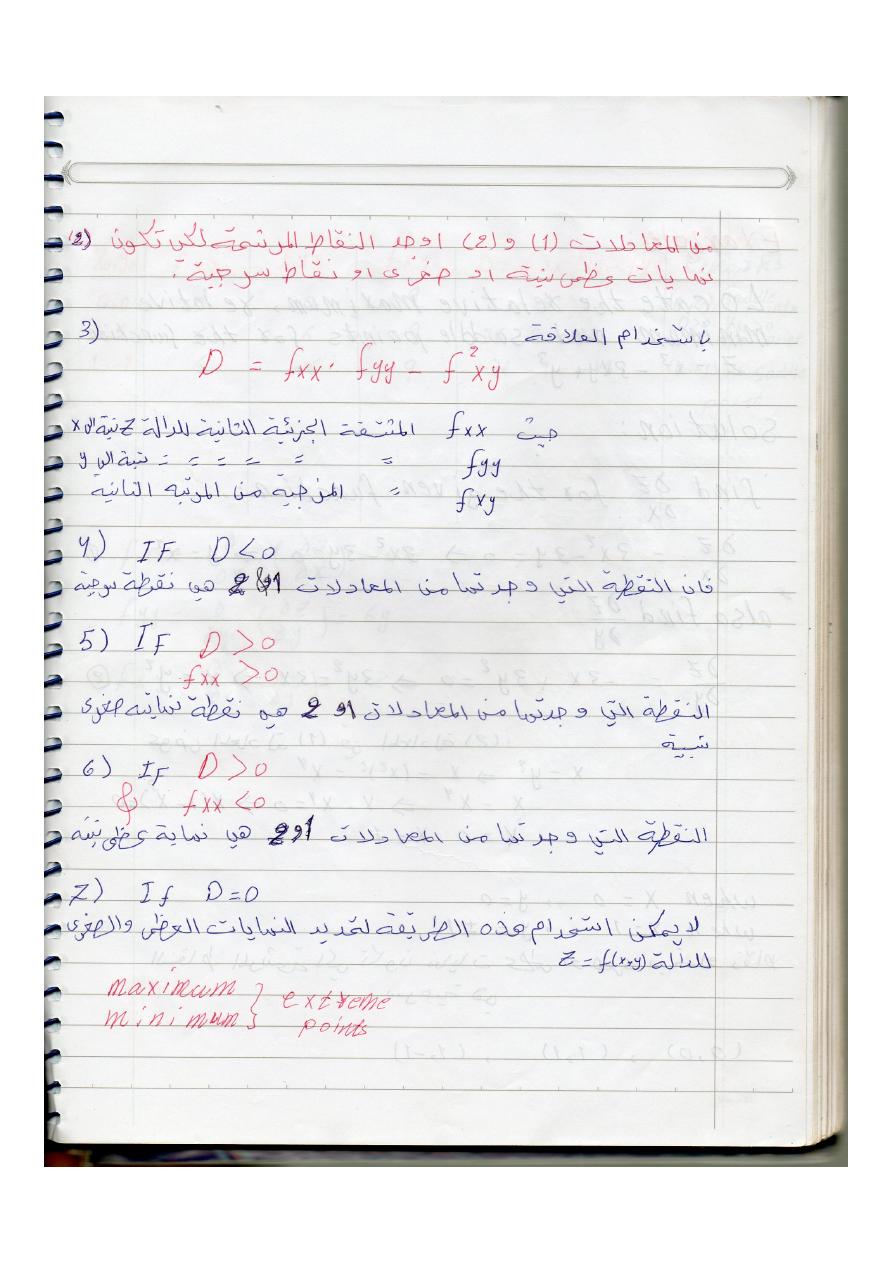 2) من المعادلات (1) و(2) اوجد النقاط المرشحة لكي تكون
نهايات عظمى نسبية او صغرى او نقاط سرجية.
3) باستخدام العلاقة
D = fxx . fyy - f²xy
حيث fxx المشتقة الجزئية الثانية للدالة Z نسبة الى x
fyy = = = = = نسبة الى y
fxy = المزجية من المرتبة الثانية
4) IF D<0
فان النقطة التي وجدتها من المعادلات 1 و 2 هي نقطة سرجية
5) IF D>0
fxx >0
النقطة التي وجدتها من المعادلات 1 و 2 هي نقطة نهاية صغرى
نسبية
6) IF D>0
& fxx <0
النقطة التي وجدتها من المعادلات 1 و 2 هي نهاية عظمى نسبية
7) If D=0
لا يمكن استخدام هذه الطريقة لتحديد النهايات العظمى والصغرى
للدالة Z = f(x,y)
maximum } extreme
minimum } points